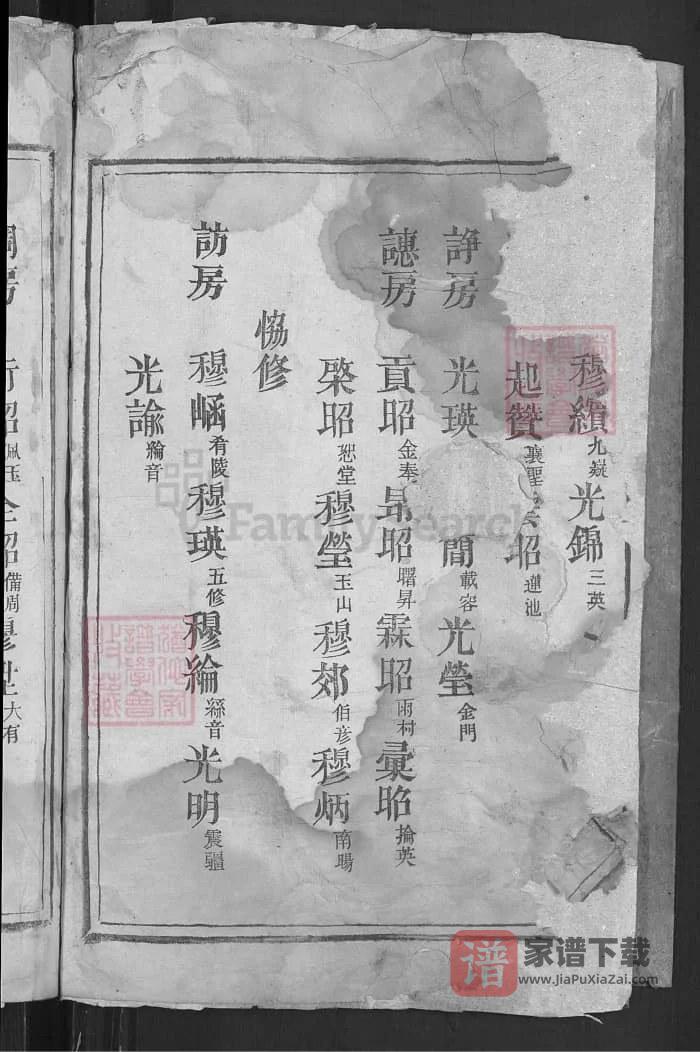 穆纘九嶷光錦三英
起贊襄聖昭蓮池
諍房
光瑛 簡載容光瑩金門
譓房
貢昭金奉昺昭曙昇霖昭雨村彙昭掄英
棨昭恕堂穆瑩玉山穆郊伯彥穆炳南暘
恊修
訪房
穆崡肴陵穆瑛五修穆綸繇音光明震疆
光諭綸音
房
昭珮玉 昭備周穆 大有
FamilySearch
谱
家谱下载
www.JiaPuXiaZai.com